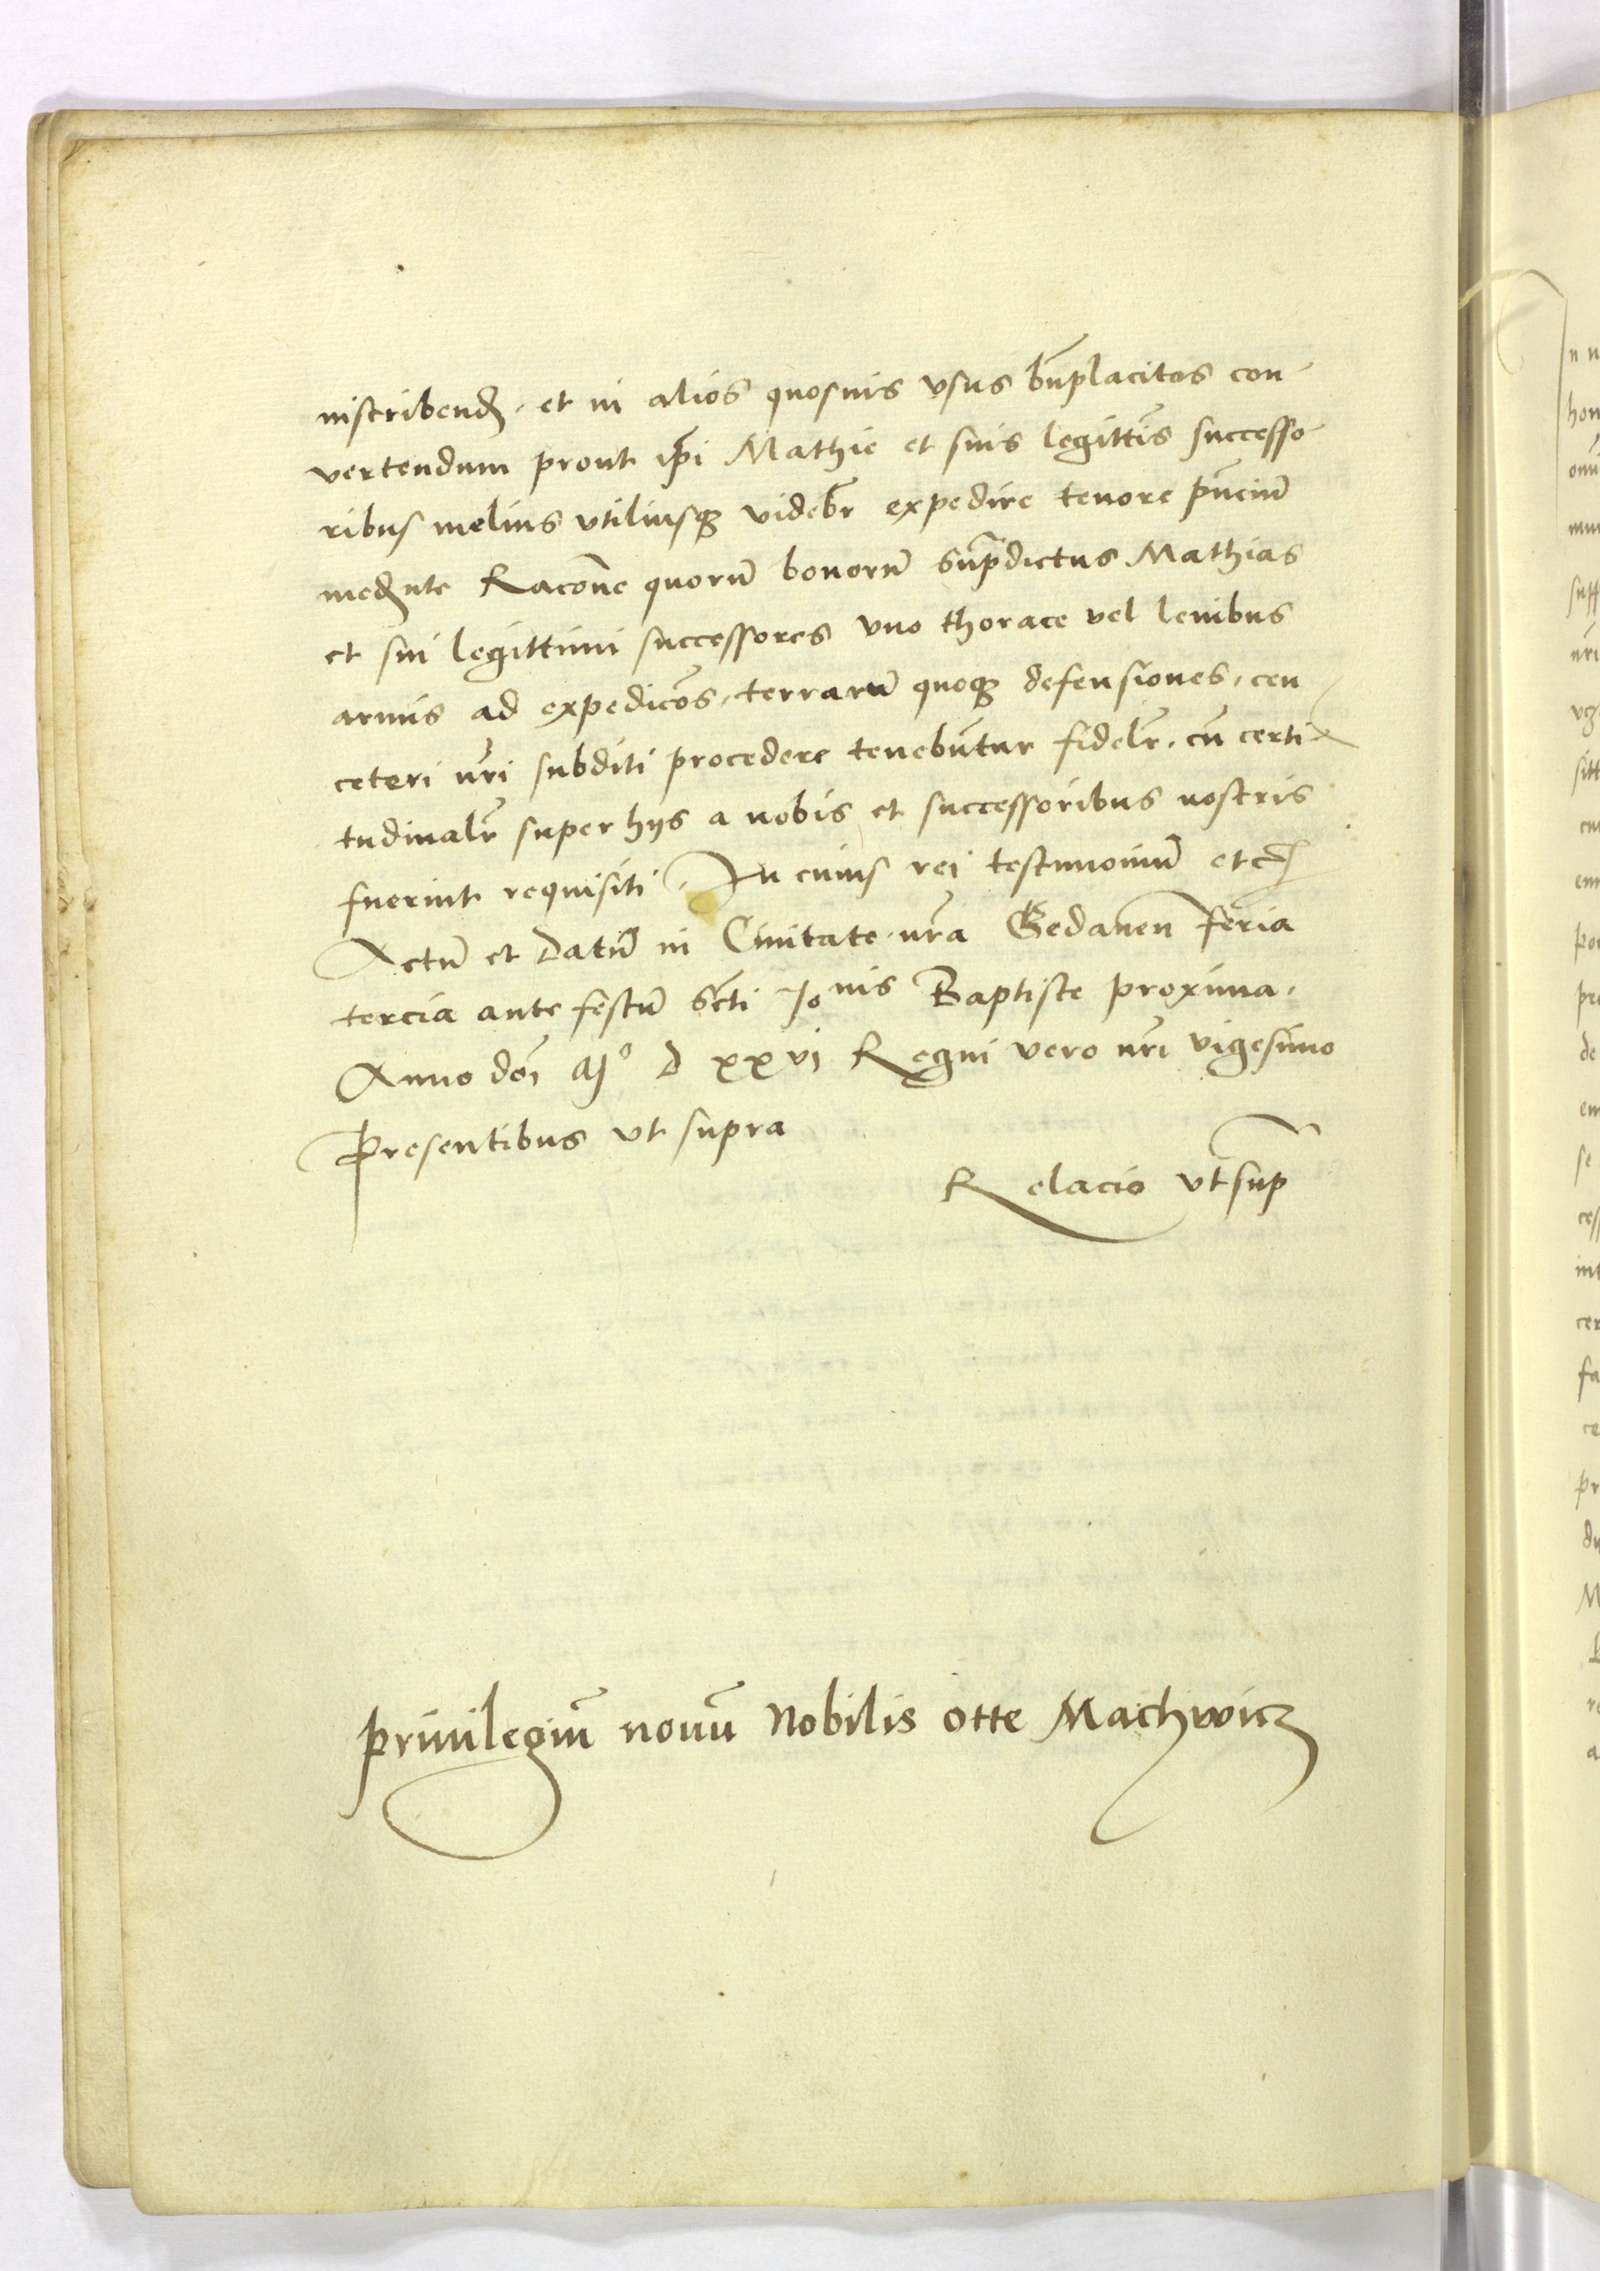 inscribend et in alios quosuis vsus bn̄placitos con¬
vertendum prout ip̄i Mathie et suis legittīs successo¬
ribus melius vtiliusq videbr̄ expedire tenore pn̄ciū
mediante Racōne quorū bonorū sup̄dictus Mathias
et sui legittimi successores vno thorace vel leuibus
armis ad expedicōs, terrarū quoq defensiones, ceu
ceteri nr̄i subditi procedere tenebūtur fidelr̄, cū certi¬
tudinalr̄ super hijs a nobis et successoribus nostris
fuerint requisiti, In cuius rei testimoniū etc
Actū et datū in Ciuitate nr̄a Gedanen̄ feria
tercia ante festū sc̄ti Jonis Baptiste proxima,
Anno dn̄i Mº D xxvj Regni vero nr̄i vigesimo
Presentibus vt supra
Relacio vt sup̄
Priuilegiū nouū Nobilis Otte Machwicz